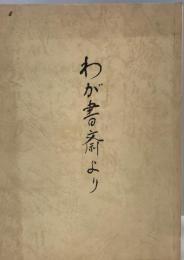 わが書斎より